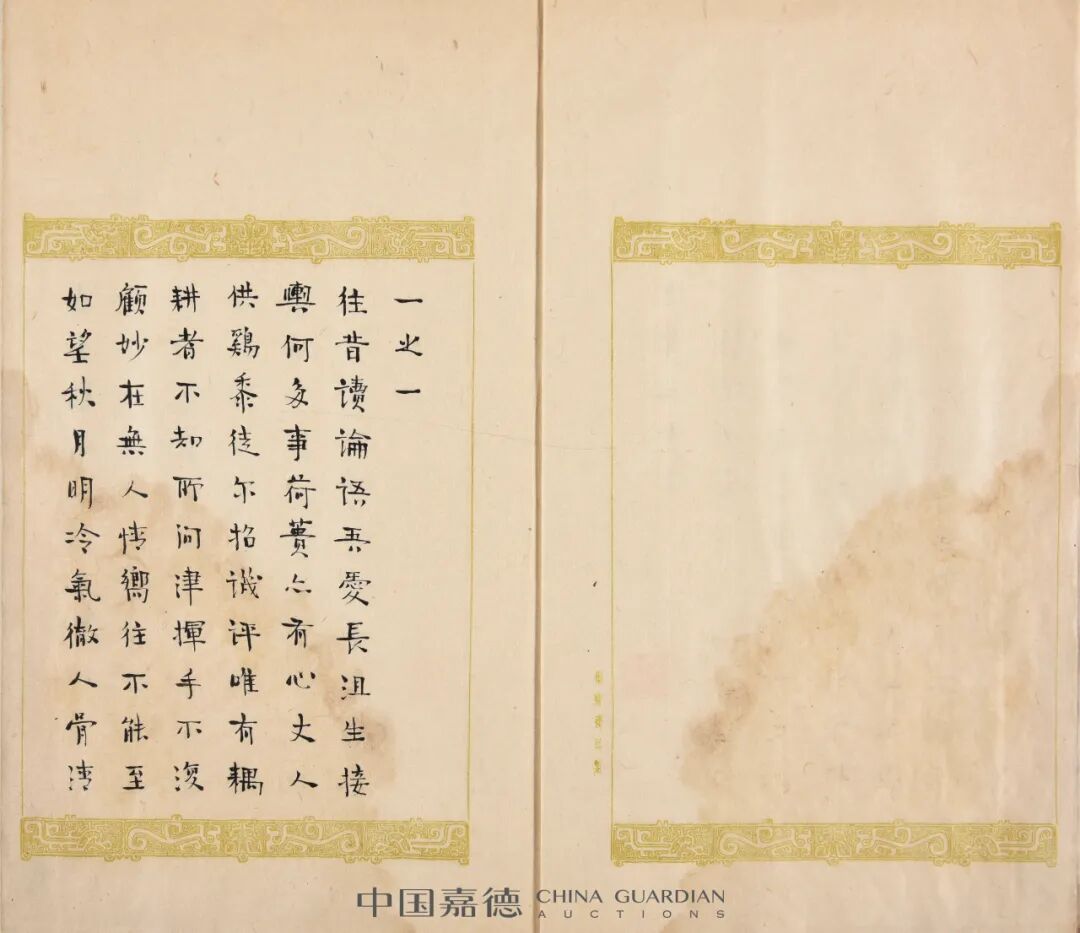 一之一
往昔讀論語吾愛長沮生接
輿何多事荷蕢亦有心丈人
供鷄黍徒尔招譏评唯有耦
耕者不知所问津揮手不復
顧妙在無人情嚮往不能至
如望秋月明冷氣徹人骨清
中国嘉德 CHINA GUARDIAN
AUCTIONS